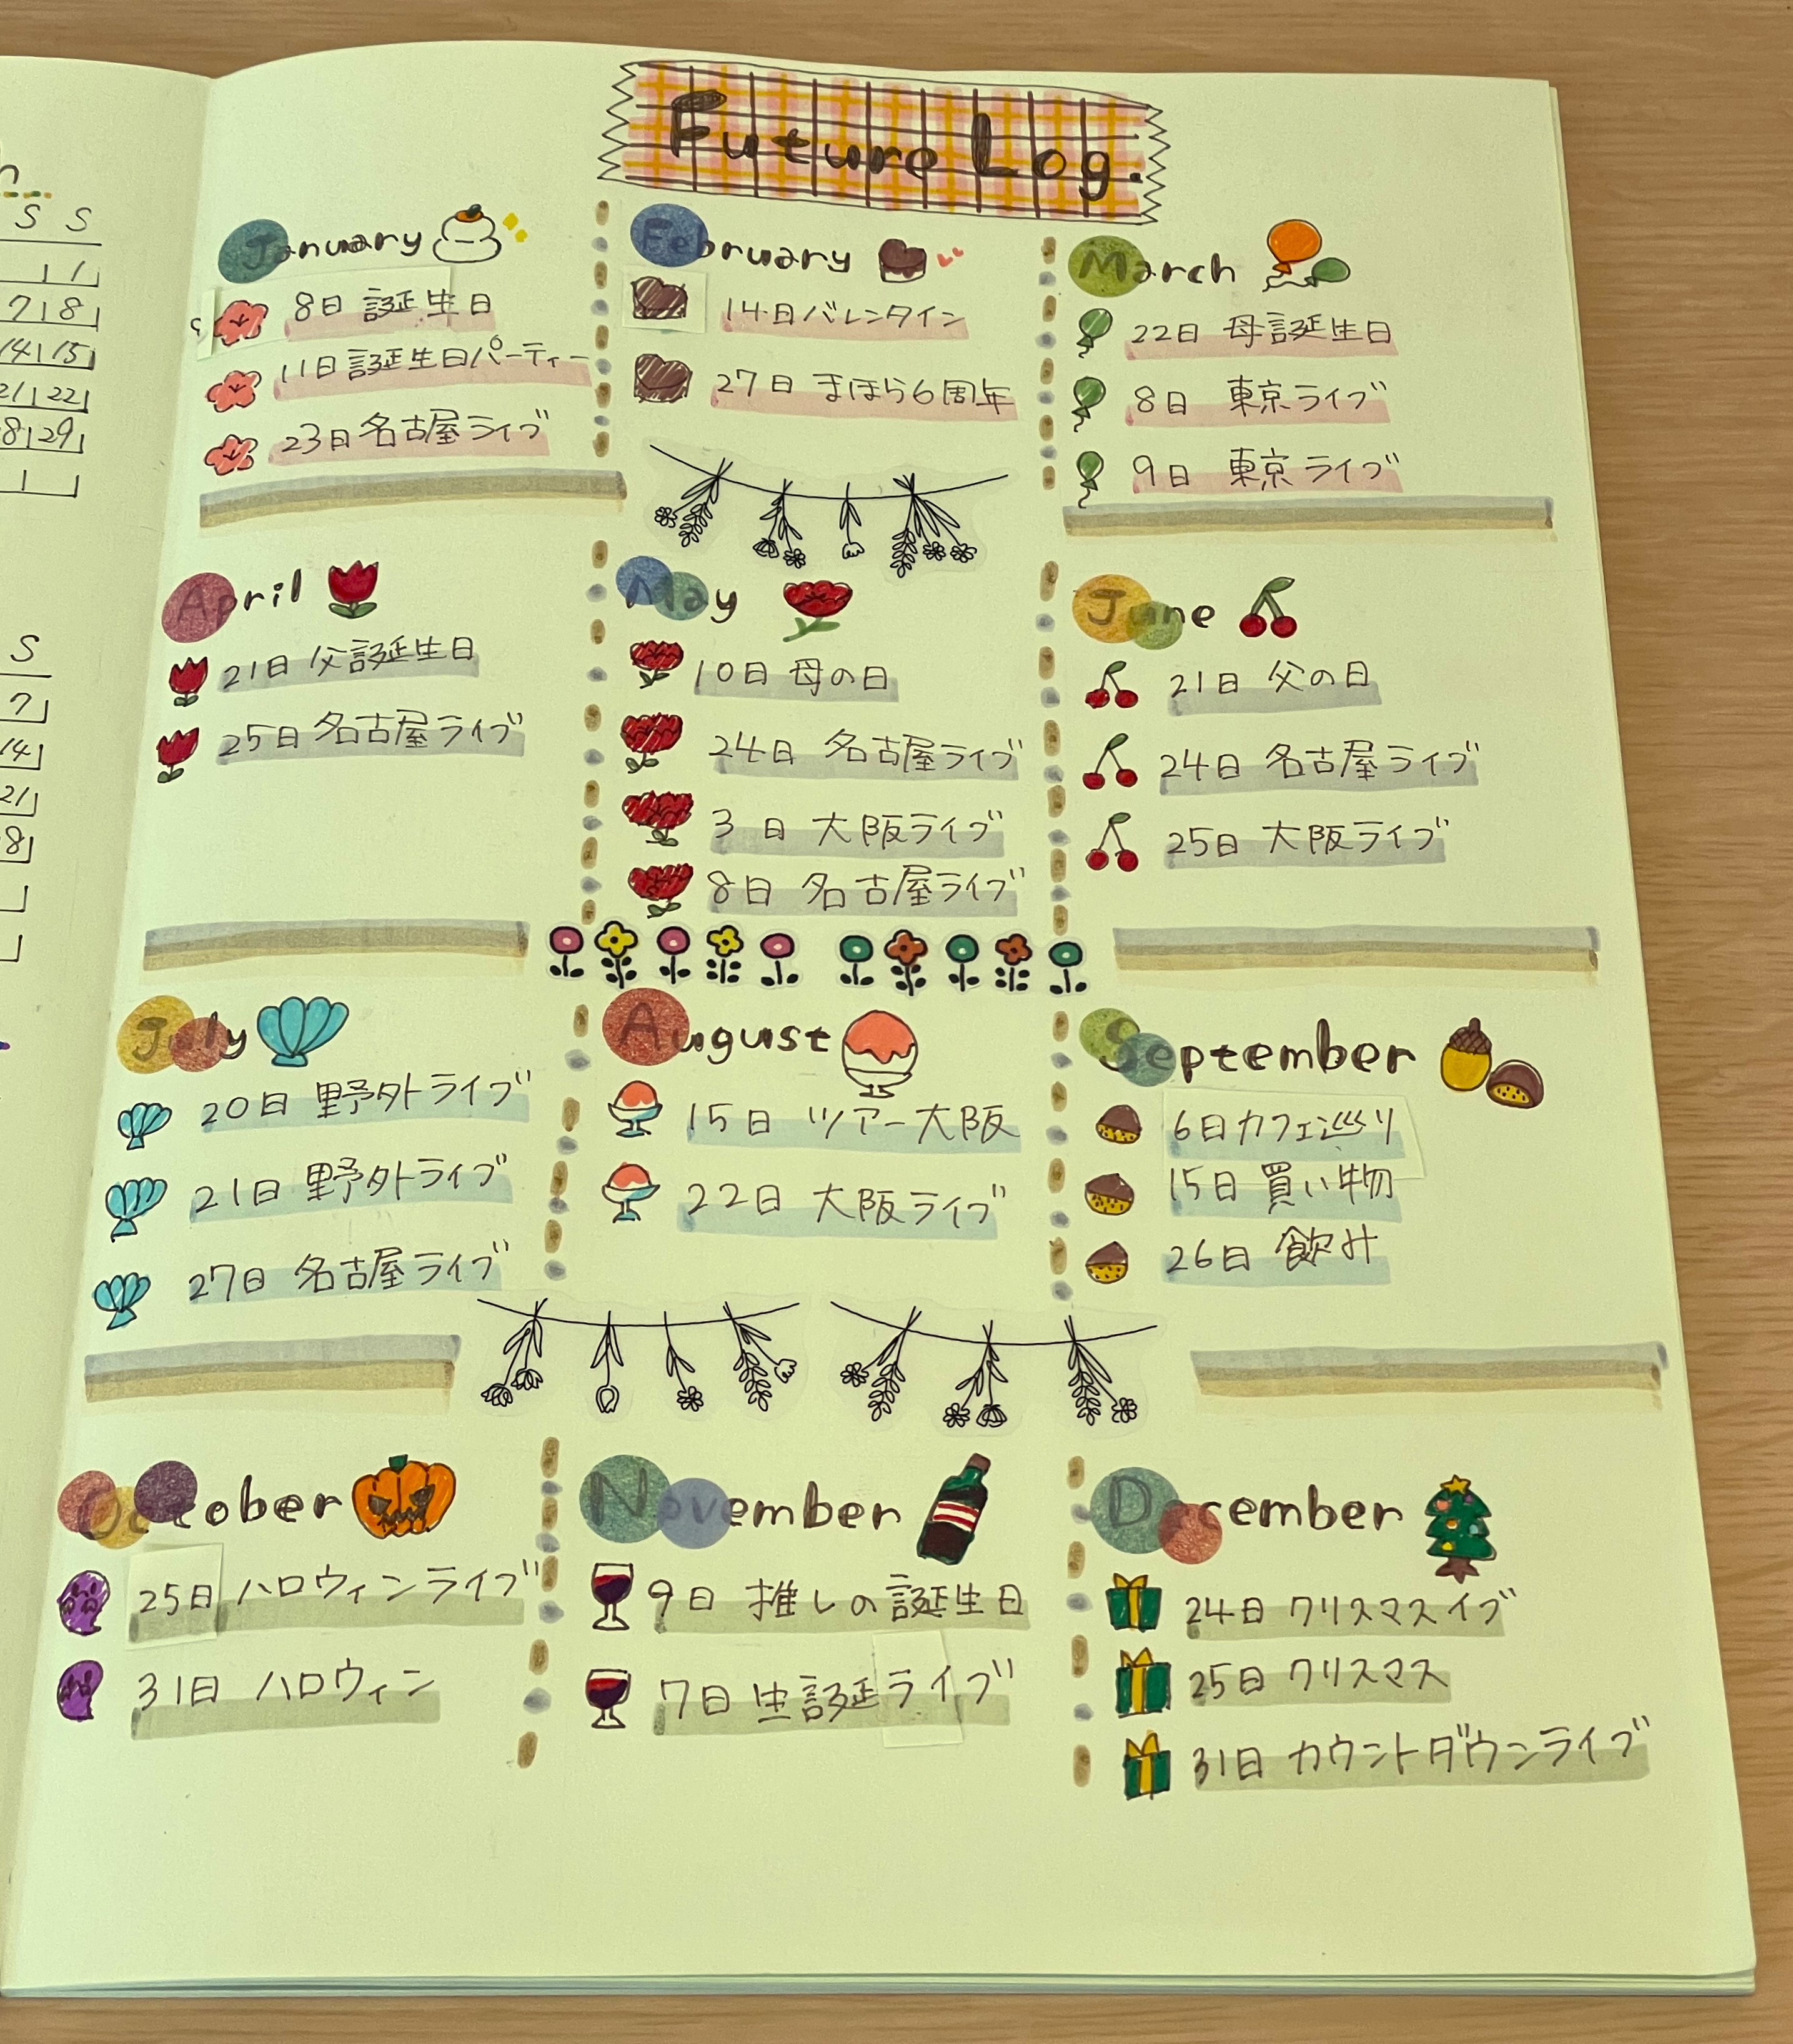 Future Log.
January
8日 誕生日
11日 誕生日パーティー
23日 名古屋ライブ
February
14日 バレンタイン
27日 まほら6周年
March
22日 母誕生日
8日 東京ライブ
9日 東京ライブ
April
21日 父誕生日
25日 名古屋ライブ
May
10日 母の日
24日 名古屋ライブ
3日 大阪ライブ
8日 名古屋ライブ
June
21日 父の日
24日 名古屋ライブ
25日 大阪ライブ
July
20日 野外ライブ
21日 野外ライブ
27日 名古屋ライブ
August
15日 ツアー大阪
22日 大阪ライブ
September
6日 カフェ巡り
15日 買い物
26日 飲み
October
25日 ハロウィンライブ
31日 ハロウィン
November
9日 推しの誕生日
7日 生誕ライブ
December
24日 クリスマスイブ
25日 クリスマス
31日 カウントダウンライブ
S S
1
7 8
14 15
21 22
29
1
S
7
14
21